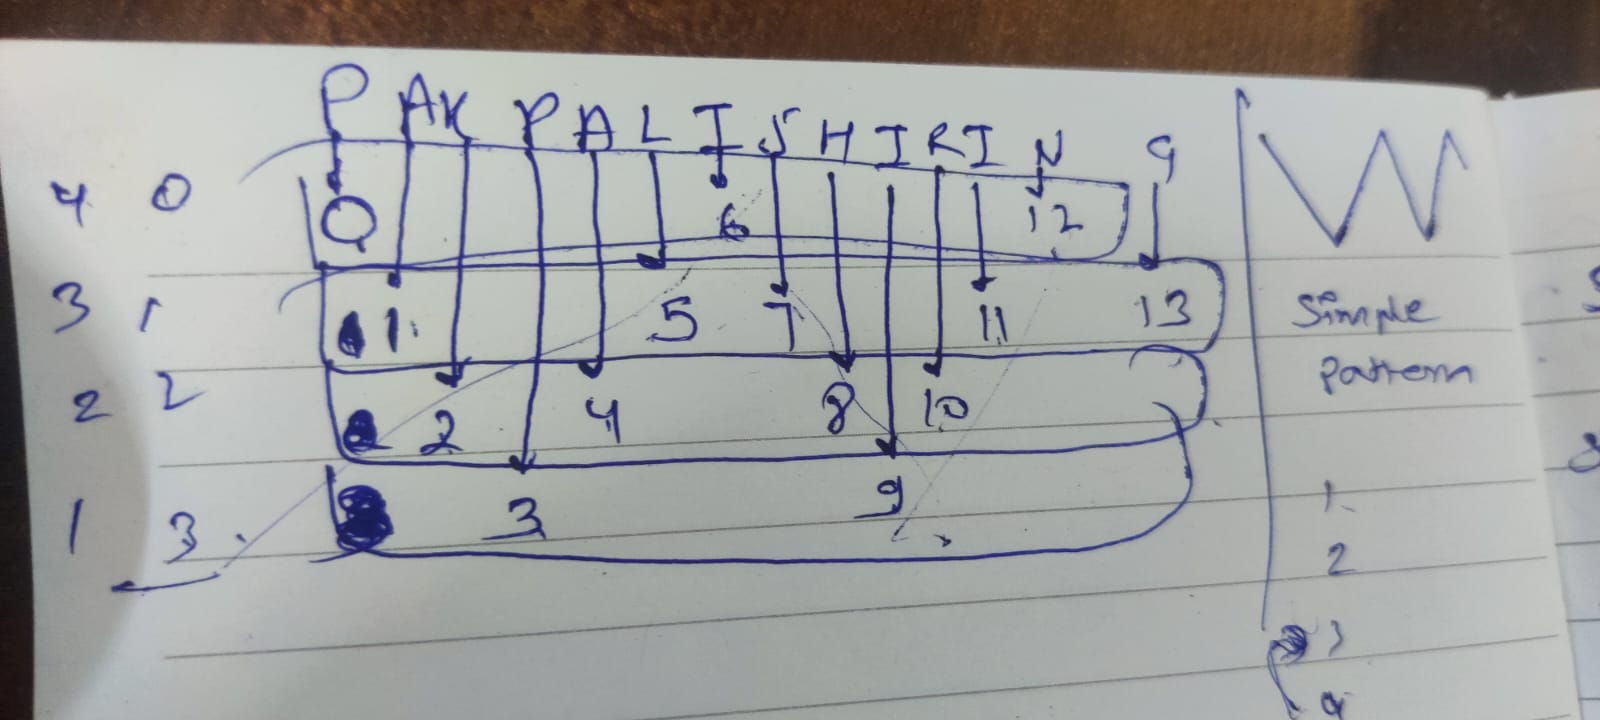 P A K P A L I S H I R I N G
4 0 0 6 12
3 1 1 1. 5 7 11 13
2 2 2 2 4 8 10
1 3. 3 9
Simple
pattern
1.
2
3
4